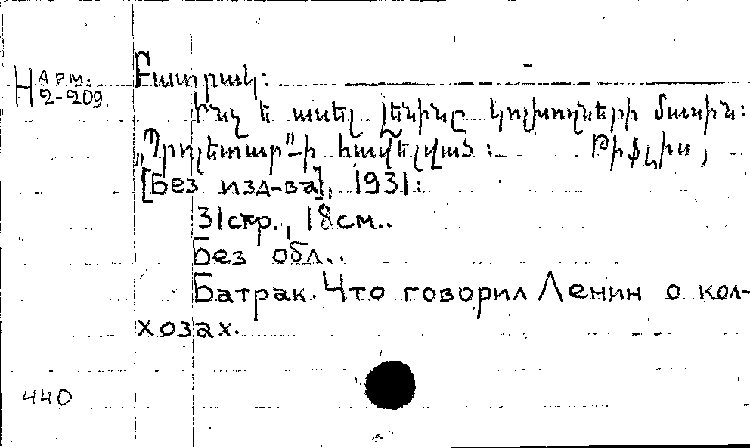 Н АРМ.
2-209
Բատրակ:
Ինչ է ասել լենինը կոլխոզների մասին:
„Պրոլետար“-ի հավելված: Թիֆլիս,
[Без изд-ва], 1931.
31стр., 18см..
Без обл..
Батрак. Что говорил Ленин о кол-
хозах.
440